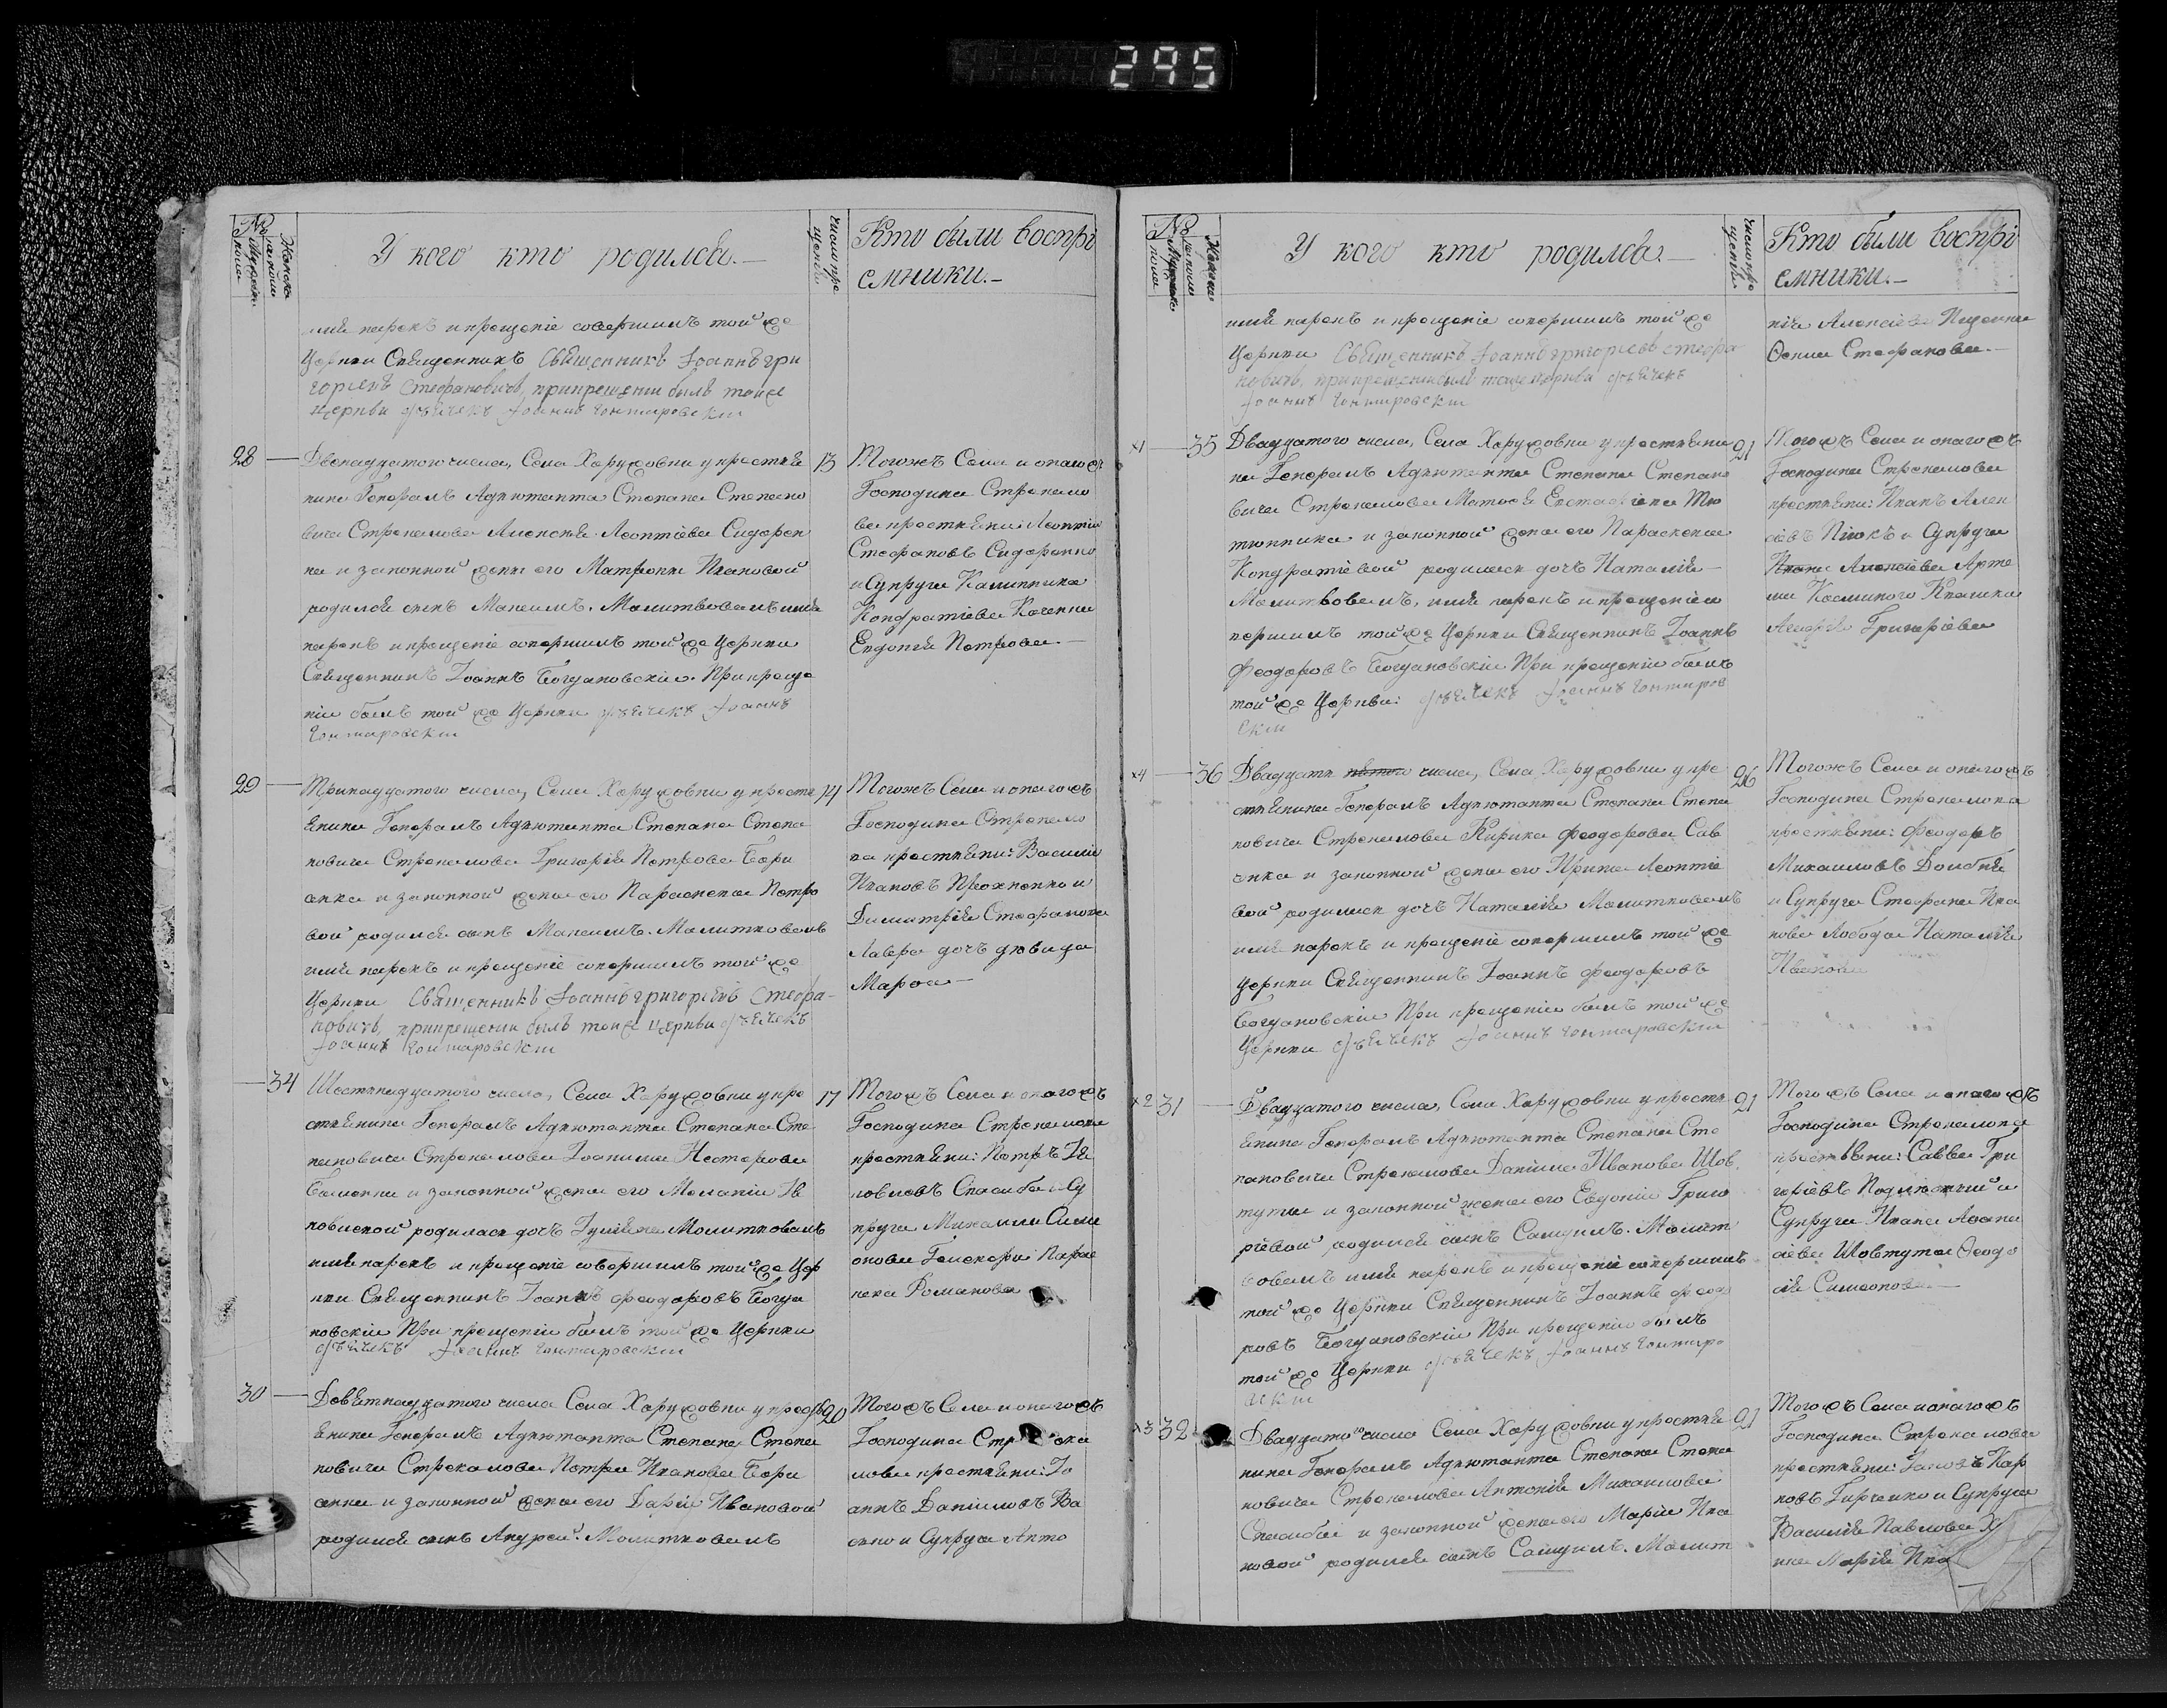 295
№
Мужеска
пола
Женска
пола
У кого кто родилсѧ.—
число кре
щенія
Кто были воспрі
емники.—
имя нарекъ и крещеніе совершилъ той же
Церкви Священникъ Священникъ Іоаннъ Гри
горіевъ Стефановичъ, при крещеніи былъ тойже
церкви дьячекъ Іоаннъ Гонтаровскій
28
Двенадцатого числа, Села Харужовки у крестья
нина Генералъ Адъютанта Степана Степано
вича Стрекалова Алексея Леонтіева Сидорен
ка и законной жены его Матроны Ивановой
родился сынъ Максимъ. Молитвовалъ имя
нарекъ и крещеніе совершилъ той же Церкви
Священникъ Іоаннъ Богдановскій. При креще
ніи былъ той же Церкви дьячекъ Іоаннъ
Гонтаровскій
13
Тогожъ Села и оногожъ
Господина Стрекало
ва крестьяни: Леонтій
Стефановъ Сидоренко
и Супруга Калинника
Кондратіева
Евдокія Петрова—
29
Тринадцатого числа, Села Харужовки у кресть
янина Генералъ Адъютанта Степана Степа
новича Стрекалова Григорія Петрова Бори
енка и законной жены его Параскевы Петро
вой родился сынъ Максимъ. Молитвовалъ
имя нарекъ и крещеніе совершилъ той же
Церкви Священникъ Іоаннъ Григоріевъ Стефа-
новичъ, при крещеніи былъ тойже церкви дьячекъ
Іоаннъ Гонтаровскій
14
Тогожъ Села и оногожъ
Господина Стрекало
ва крестьяни: Василій
Ивановъ и
Димитрія Стефанова
Лавера дочъ девица
Марфа—
34
Шестнадцатого числа, Села Харужовки у кре
стьянина Генералъ Адъютанта Степана Сте
пановича Стрекалова Іоакима Нестерова
и законной жены его Меланіи Я
ковлевой родилась дочъ Іуліяна Молитвовалъ
имя нарекъ и крещеніе совершилъ той же Цер
кви Священникъ Іоаннъ Феодоровъ Богда
новскій При крещеніи былъ той же Церкви
дьячекъ Іоаннъ Гонтаровскій
17
Тогожъ Села и оногожъ
Господина Стрекалова
крестьяни: Петръ Я
ковлевъ Спасиба и Су
пруга Михаила Сем
онова Парас
кева Романова
30
Девятнадцатого числа Села Харужовки у кресть
янина Генералъ Адъютанта Степана Степа
новича Стрекалова Петра Иванова Бори
енка и законной жены его Даріи Ивановой
родился сынъ Андрей. Молитвовалъ
20
Тогожъ Села и оногожъ
Господина Стрека
лова крестьяни: Іо
аннъ Даніиловъ
и Супруга Анто
№
Мужеска
пола
Женска
пола
У кого кто родилсѧ.—
число кре
щенія
Кто были воспрі
емники.—
имя нарекъ и крещеніе совершилъ той же
Церкви Священникъ Іоаннъ Григоріевъ Стефа
новичъ, при крещеніи былъ тойже церкви дьячекъ
Іоаннъ Гонтаровскій
нія Алексіева Ищенка
Ѳекла Стефанова.—
x1
35
Двадцатого числа, Села Харужовки у крестьяни
на Генералъ Адъютанта Степана Степано
вича Стрекалова Матфея Евстафіева Тю
тюнника и законной жены его Параскевы
Кондратіевой родилась дочъ Наталія—
Молитвовалъ, имя нарекъ и крещеніе со
вершилъ той же Церкви Священникъ Іоаннъ
Феодоровъ Богдановскій При крещеніи былъ
той же Церкви: дьячекъ Іоаннъ Гонтаров
скій
21
Тогожъ Села и оногожъ
Господина Стрекалова
крестьяни: Иванъ Алек
сіевъ и Супруга
Арте
ма Косминого Ивашка
Агафія Григоріева
x4
36
Двадцать пятого числа, Села Харужовки у кре
стьянина Генералъ Адъютанта Степана Степа
новича Стрекалова Кирика Феодорова Сав
енка и законной жены его Ирины Леонтіе
вой родилась дочъ Наталія Молитвовалъ
имя нарекъ и крещеніе совершилъ той же
Церкви Священникъ Іоаннъ Феодоровъ
Богдановскій При крещеніи былъ той же
Церкви дьячекъ Іоаннъ Гонтаровскій
26
Тогожъ Села и оногожъ
Господина Стрекалова
крестьяни: Феодоръ
Михаиловъ Долбня
и Супруга Стефана Ива
нова Лободы Наталія
Иванова
x2
31
Двадцатого числа, Села Харужовки у кресть
янина Генералъ Адъютанта Степана Сте
пановича Стрекалова Даніила Иванова Шов
туты и законной жены его Евдокіи Григо
ріевой родился сынъ Самуилъ. Молит
вовалъ имя нарекъ и крещеніе совершилъ
той же Церкви Священникъ Іоаннъ Феодо
ровъ Богдановскій При крещеніи былъ
той же Церкви дьячекъ Іоаннъ Гонтаро
вскій
21
Тогожъ Села и оногожъ
Господина Стрекалова
крестьяни: Савва Гри
горіевъ и
Супруга Ивана Афана
сіева Шовтуты Феодо
сія Симеонова—
x3
32
Двадцатого числа Села Харужовки у крестья
нина Генералъ Адъютанта Степана Степа
новича Стрекалова Антонія Михаилова
Спасибы и законной жены его Маріи Ива
новой родился сынъ Самуилъ. Молит
21
Тогожъ Села и оногожъ
Господина Стрекалова
крестьяни: Іаковъ Кар
повъ Гирченко и Супруга
Василія Павлова
Марія Ива